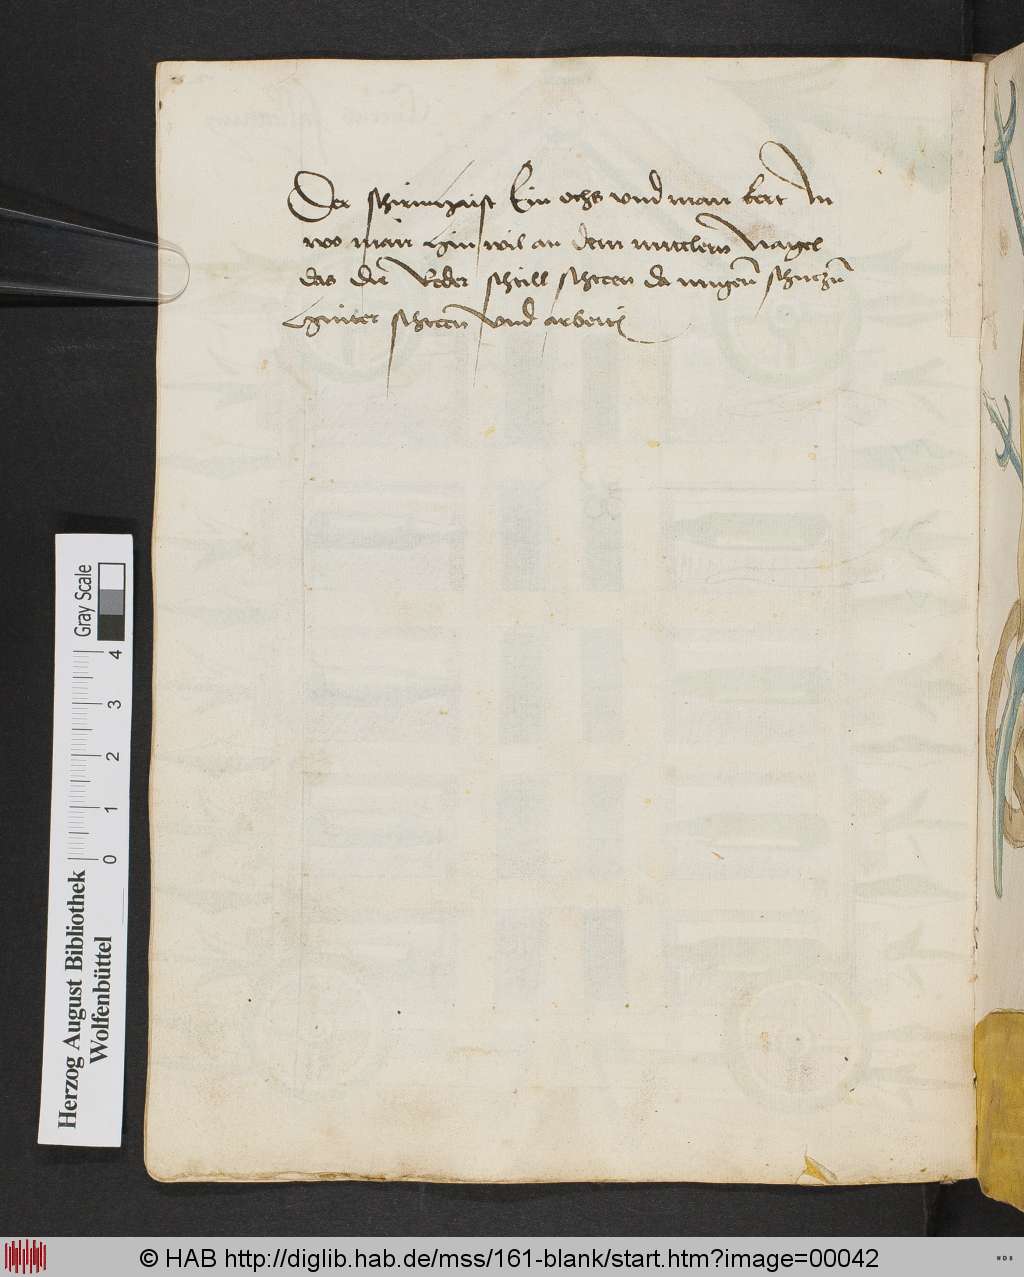 Der schirm haist Ein ochs vnd man kert In
wo man hin wil an dem mittlern Nagel
das die Reder still steen da mugen schuczn
hinter steen vnd arbeiten
Herzog August Bibliothek
Wolfenbüttel
0 1 2 3 4
Gray Scale
© HAB http://diglib.hab.de/mss/161-blank/start.htm?image=00042